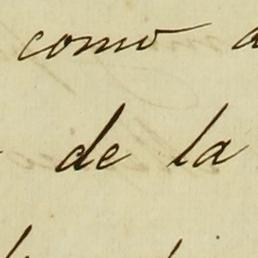 como
de la